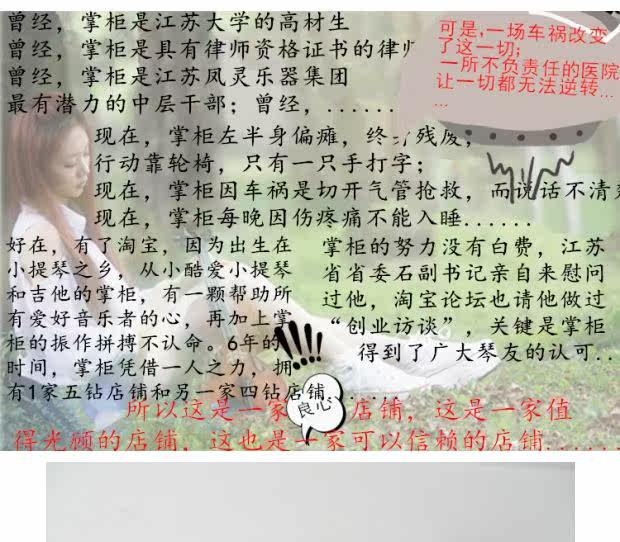 曾经，掌柜是江苏大学的高材生
曾经，掌柜是具有律师资格证书的律师
曾经，掌柜是江苏凤灵乐器集团
最有潜力的中层干部；曾经，......
可是，一场车祸改变
了这一切；
一所不负责任的医院
让一切都无法逆转...
...
现在，掌柜左半身偏瘫，终身残废，
行动靠轮椅，只有一只手打字；
现在，掌柜因车祸是切开气管抢救，而说话不清
现在，掌柜每晚因伤疼痛不能入睡......
好在，有了淘宝，因为出生在
小提琴之乡，从小酷爱小提琴
和吉他的掌柜，有一颗帮助所
有爱好音乐者的心，再加上掌
柜的振作拼搏不认命。6年的
时间，掌柜凭借一人之力，拥
有1家五钻店铺和另一家四钻店铺......
掌柜的努力没有白费，江苏
省省委石副书记亲自来慰问
过他，淘宝论坛也请他做过
“创业访谈”，关键是掌柜
得到了广大琴友的认可..
!!!!
良心
所以这是一家 店铺，这是一家值
得光顾的店铺，这也是一家可以信赖的店铺......